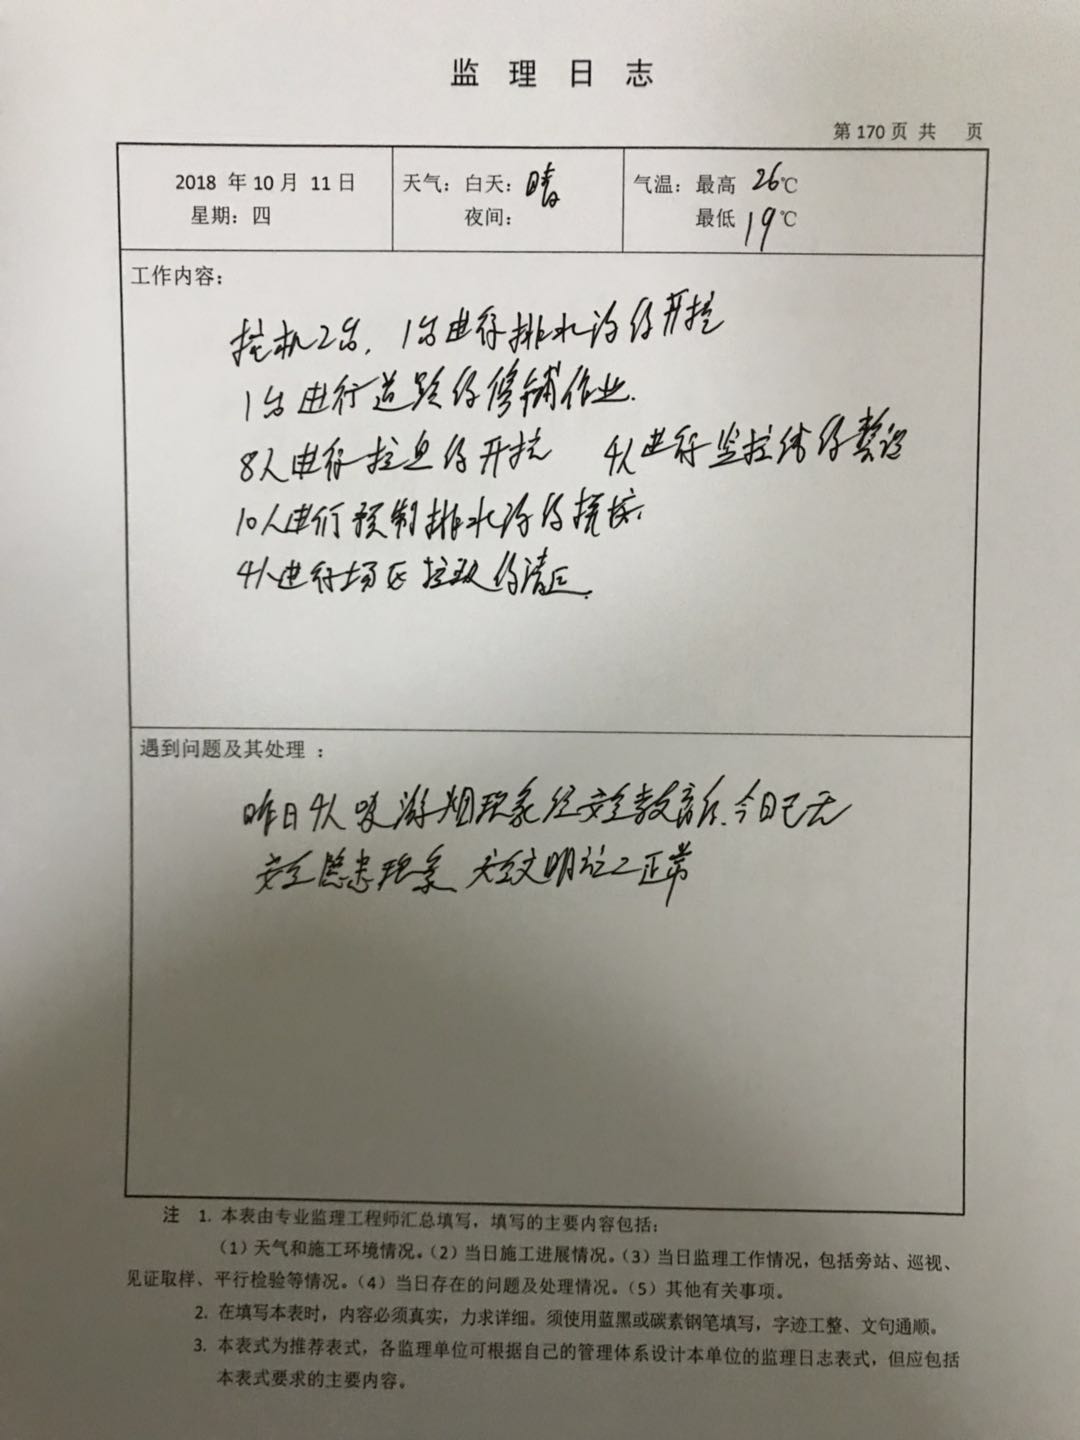 监 理 日 志
第 170 页 共 页
2018 年 10 月 11 日
星期：四
天气：白天：晴
夜间：
气温：最高 26℃
最低 19℃
工作内容：
挖机2台，1台进行排水沟的开挖
1台进行道路的修铺作业.
8人进行 的开挖 4人进行监控 的
10人进行预制排水沟的
4人进行场区垃圾的清
遇到问题及其处理：
昨日4人吸游烟现象经安全教育后.今日已无
安全隐患现象 安全文明施工正常
注 1. 本表由专业监理工程师汇总填写，填写的主要内容包括：
（1）天气和施工环境情况。（2）当日施工进展情况。（3）当日监理工作情况，包括旁站、巡视、
见证取样、平行检验等情况。（4）当日存在的问题及处理情况。（5）其他有关事项。
2. 在填写本表时，内容必须真实，力求详细。须使用蓝黑或碳素钢笔填写，字迹工整、文句通顺。
3. 本表式为推荐表式，各监理单位可根据自己的管理体系设计本单位的监理日志表式，但应包括
本表式要求的主要内容。